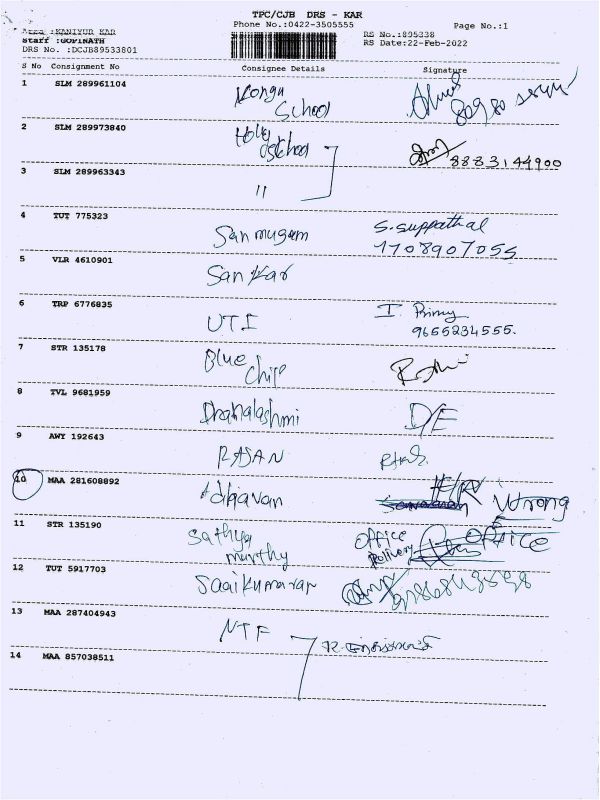 TPC/CJB DRS - KAR
Phone No.:0422-3505555
Page No.:1
Area :KANIYUR KAR
Staff :GOPINATH
DRS No. :DCJB89533801
RS No.:895338
RS Date:22-Feb-2022
S No Consignment No Consignee Details Signature
1 SLM 289961104 Kongu School
2 SLM 289973840 Holy School 8883144900
3 SLM 289963343 "
4 TUT 775323 Sanmugam S. Suppathal
1708907055
5 VLR 4610901 Sankar
6 TRP 6776835 UTI I. Primy
9655234555.
7 STR 135178 Blue Chip
8 TVL 9681959 Dhanalashmi D/E
9 AWY 192643 RAJAN
10 MAA 281608892 Adhavan Wrong
11 STR 135190 Sathya murthy Office Delivery OFFICE
12 TUT 5917703 Saaikumaran
13 MAA 287404943 NTF
14 MAA 857038511